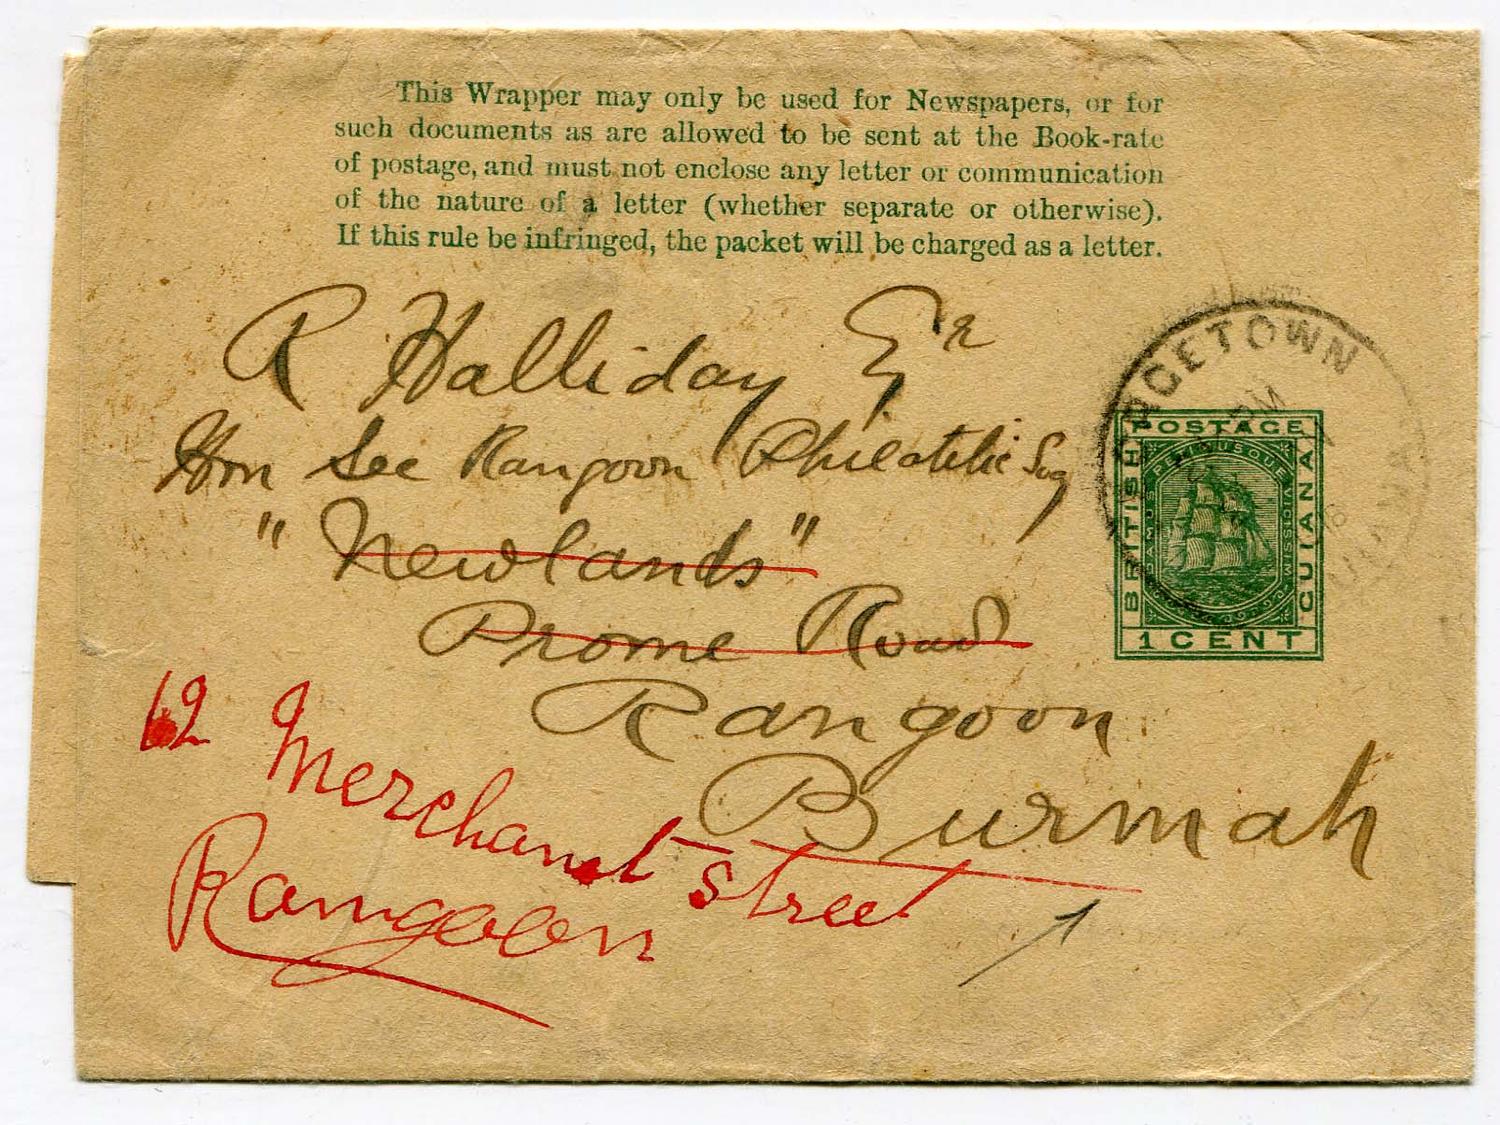 This Wrapper may only be used for Newspapers, or for
such documents as are allowed to be sent at the Book-rate
of postage, and must not enclose any letter or communication
of the nature of a letter (whether separate or otherwise).
If this rule be infringed, the packet will be charged as a letter.
R Halliday Esr
Hon Sec Rangoon Philatelic Socy
"Newlands"
Prome Road
Rangoon
Burmah
62 Merchant Street
Rangoon
GETOWN
PM
POSTAGE
BRITISH
GUIANA
DAMUS PETIMUSQUE VICISSIM
1 CENT